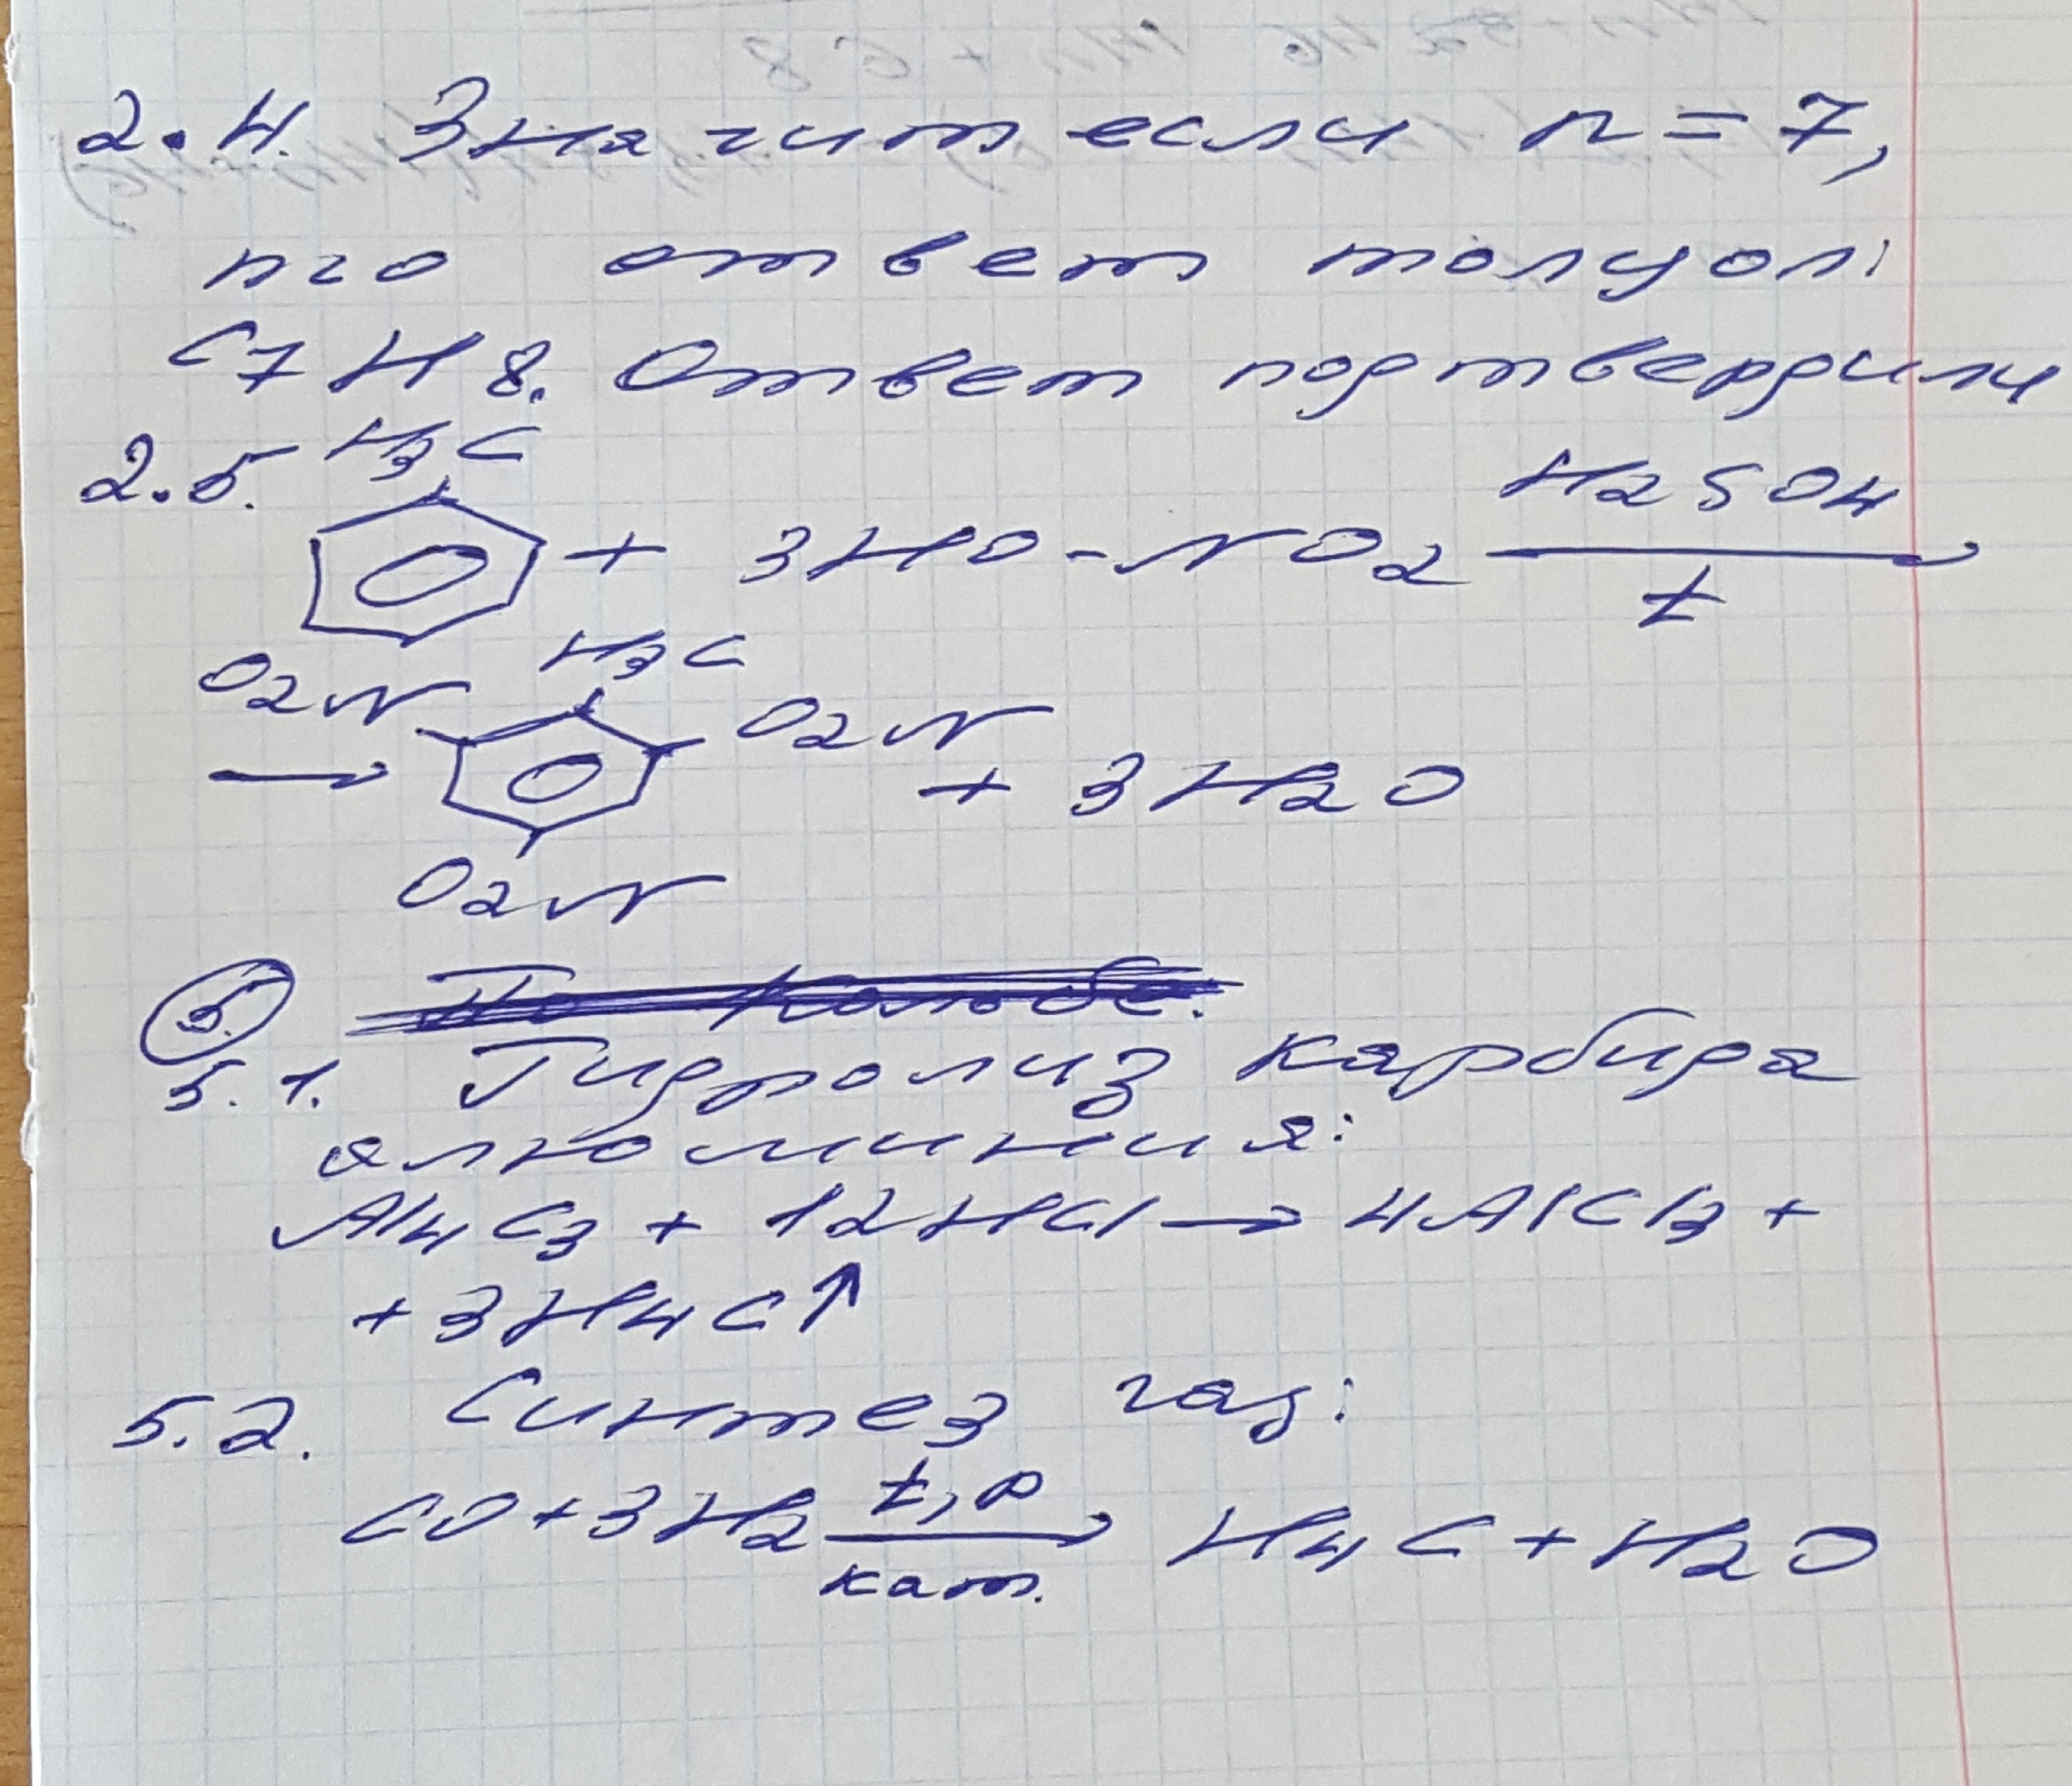 2.4. Значит если n = 7,
то ответ толуол:
C7H8. Ответ подтвердили
2.5. H3C
+ 3HO-NO2 H2SO4 t →
O2N H3C O2N
→ + 3H2O
O2N
5.
По Кольбе:
5.1. Гидролиз карбида
алюминия:
Al4C3 + 12HCl → 4AlCl3 +
+ 3H4C↑
5.2. Синтез газ:
CO + 3H2 t, p кат. → H4C + H2O